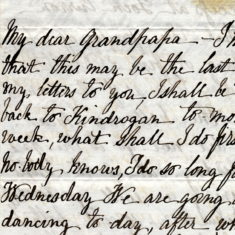 My dear Grandpapa - I h
that this may be the last
my letters to you, I shall be
back to Kindrogan to mo
week, what shall I do firs
nobody knows, I do so long f
Wednesday We are going
dancing to day, after wh